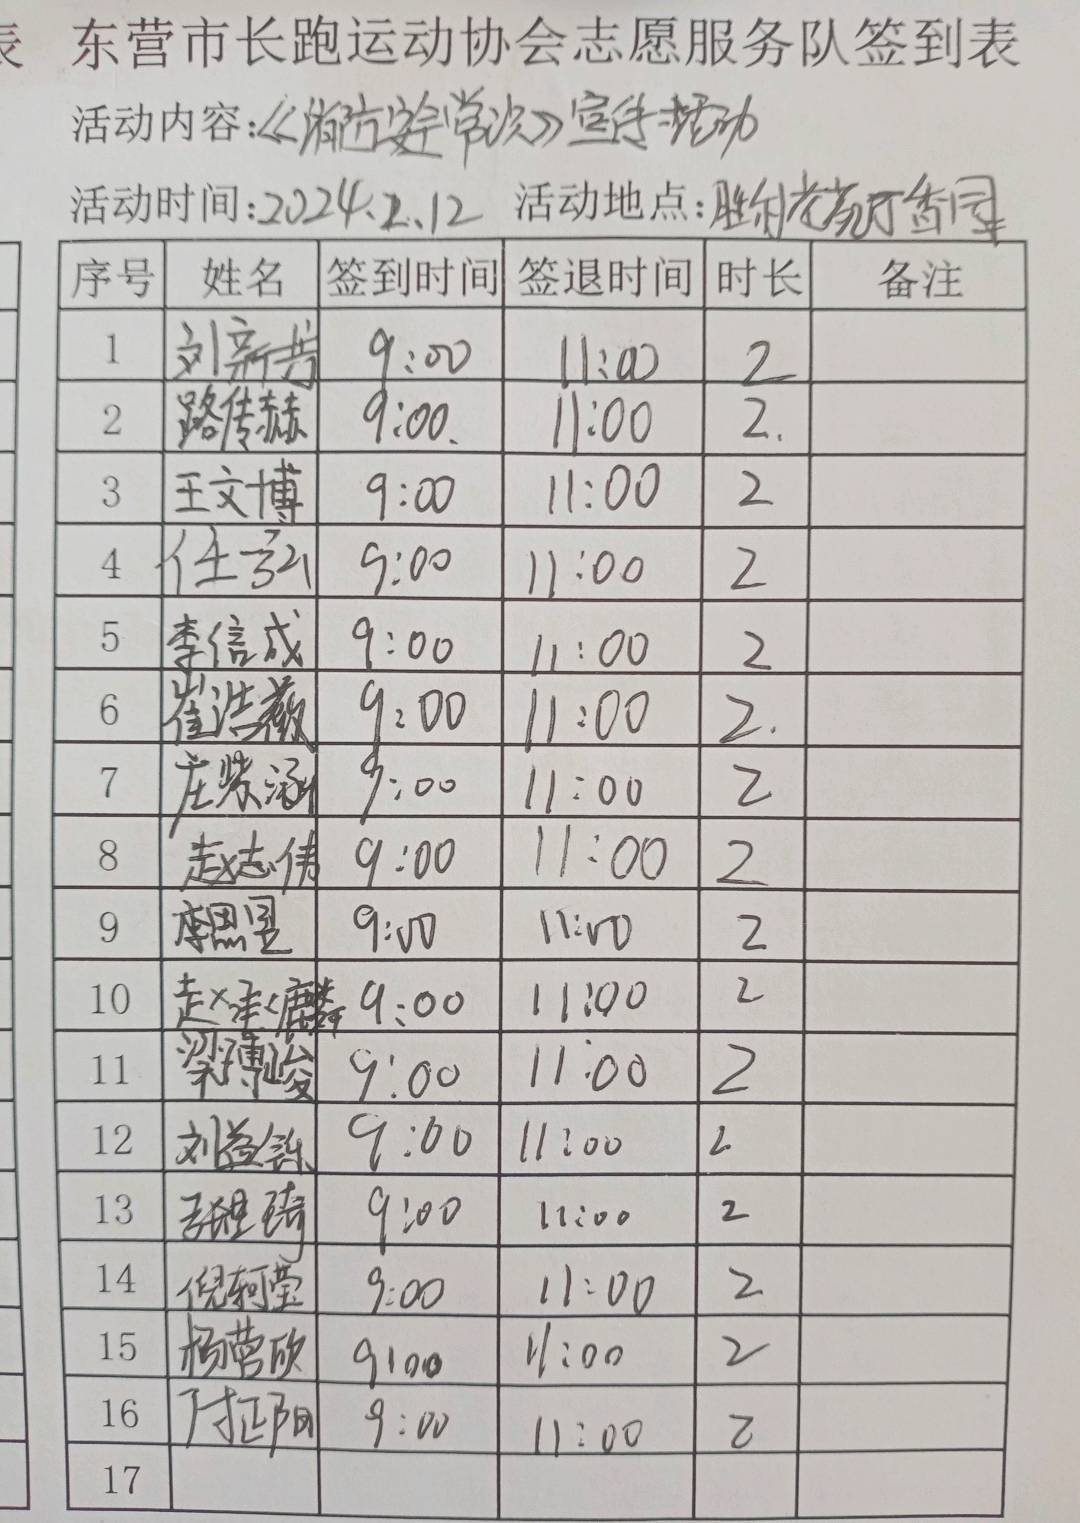 表 东营市长跑运动协会志愿服务队签到表
活动内容:《消防安全常识》宣传活动
活动时间:2024.2.12 活动地点:胜利花苑丁香园
序号 姓名 签到时间 签退时间 时长 备注
1 刘新 9:00 11:00 2
2 路传赫 9:00. 11:00 2.
3 王文博 9:00 11:00 2
4 任 9:00 11:00 2
5 李信成 9:00 11:00 2
6 崔浩薇 9:00 11:00 2.
7 庄紫涵 9:00 11:00 2
8 赵志伟 9:00 11:00 2
9 李思昱 9:00 11:00 2
10 赵承麟 9:00 11:00 2
11 梁博峻 9:00 11:00 2
12 刘益铄 9:00 11:00 2
13 琦 9:00 11:00 2
14 倪轲莹 9:00 11:00 2
15 杨营欣 9:00 11:00 2
16 付正阳 9:00 11:00 2
17